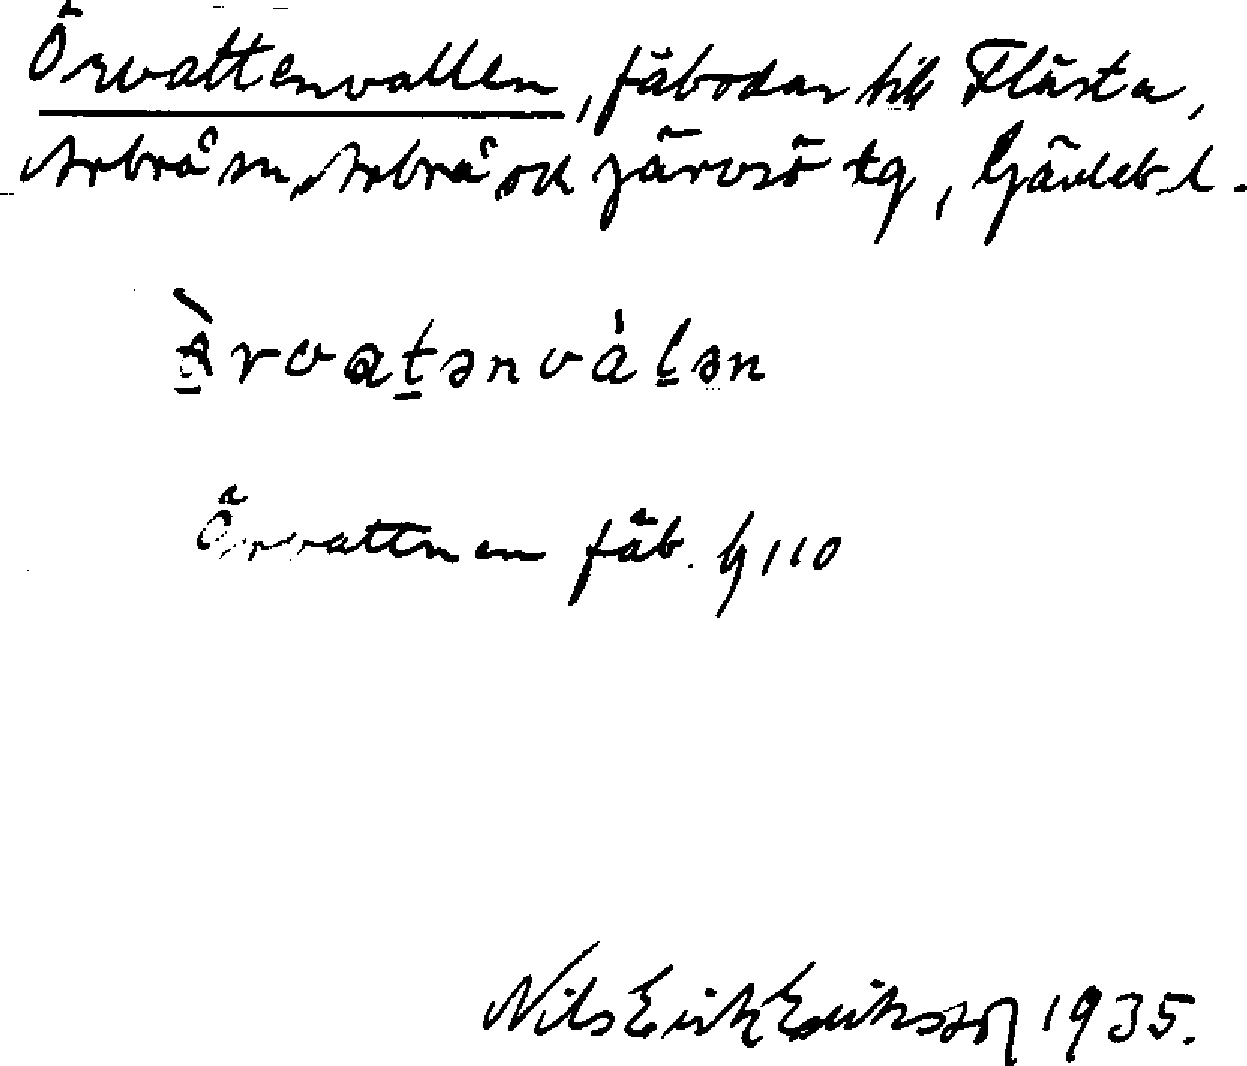 Örvattenvallen, fäbodar till Flästa,
Arbrå sn, Arbrå och Järvsö tg, Gävleb. l.
Ärvatənvàlən
Örvattnen fäb. G 110
Nils Erik Eriksson 1935.